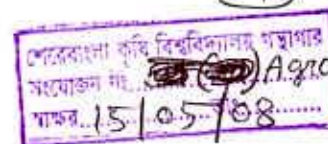 শেরেবাংলা কৃষি বিশ্ববিদ্যালয় গন্থাগার
সংযোজন নং Agro
স্বাক্ষর 15/05/08